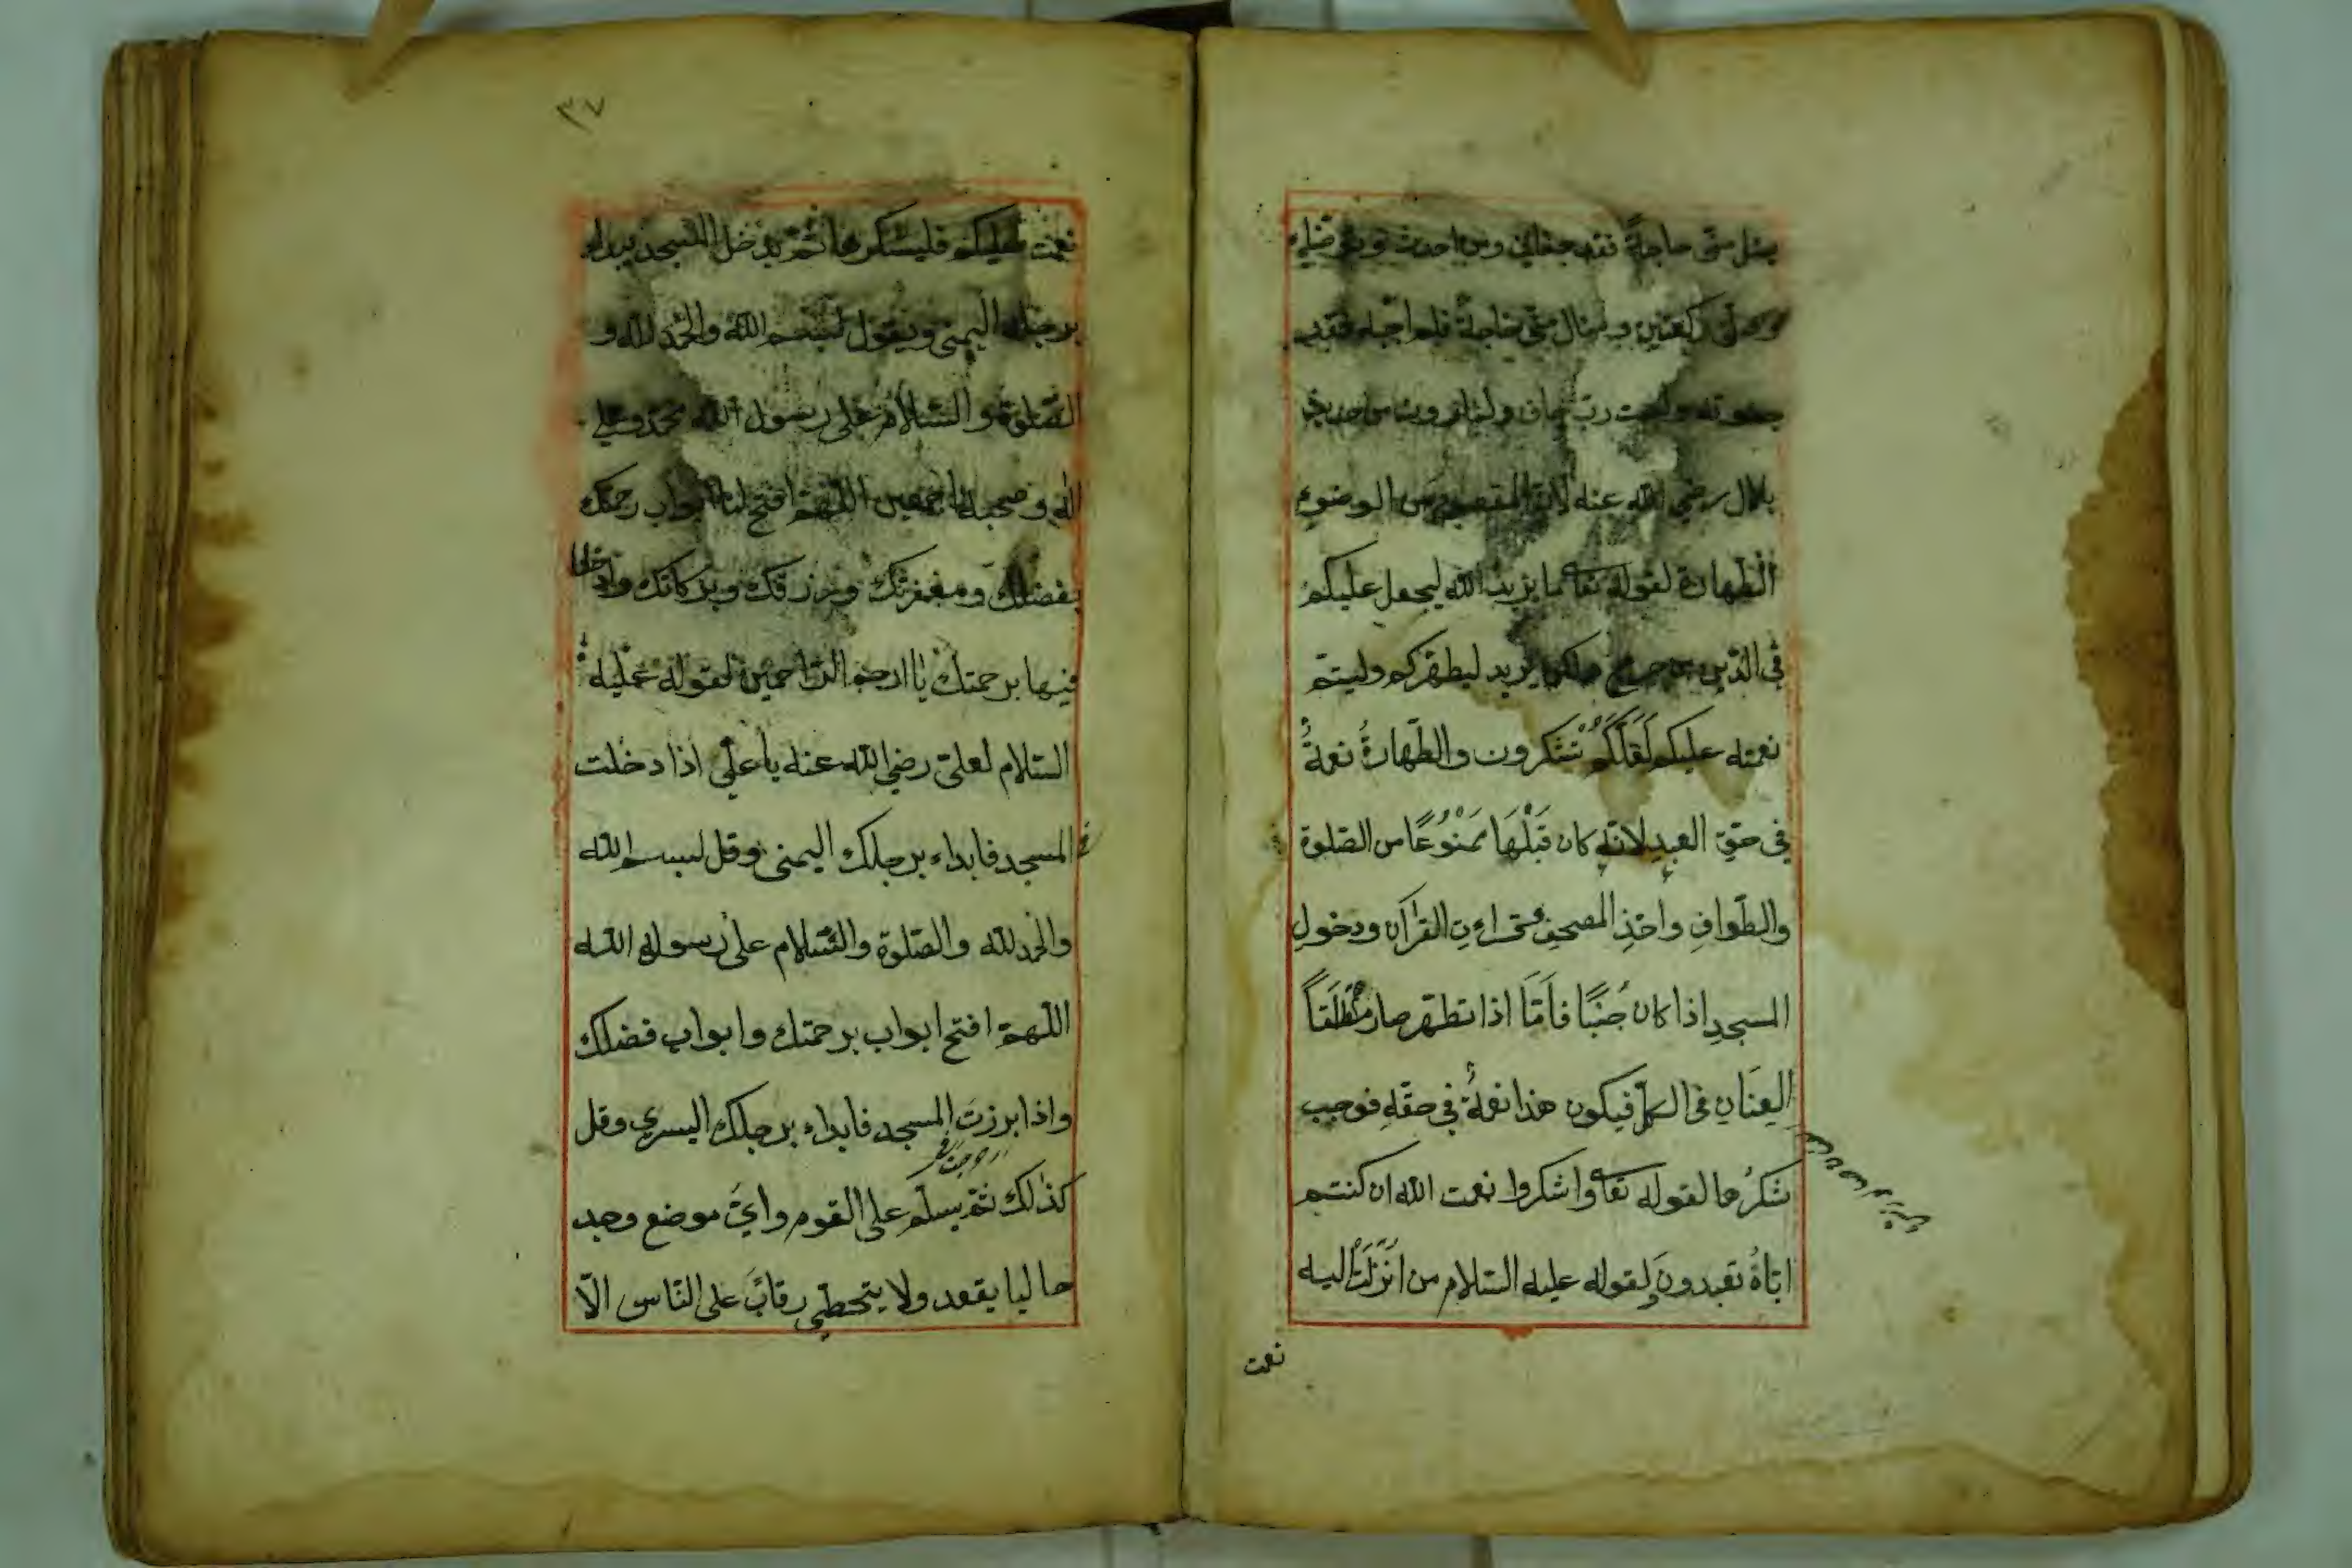 يسئل منّى حاجةً فقد جفانى ومن احدث وتوضاء
وصلّى ركعتين وسال منّى حاجةً فلم اجبه فقد
جفوته ولست ربّ جاف
بلال رضي الله عنه لانّ المقصود من الوضوء
الطّهارة لقوله تعا ما يريد الله ليجعل عليكم
فى الدّين من حرج ولكن يريد ليطهّركم وليتمّ
نعمته عليكم لَعَلَّكُمْ تَشكرون والطّهارةُ نعمةٌ
فى حقّ العبدِ لانّه كان قَبْلَهَا مَمْنُوعًا من الصّلوة
والطّوافِ واخذِ المصحف وقراءتِ القرآن ودخولِ
المسجدِ اذا كان جُنُبًا فاَمَّا اذا تطهّر صار مُطْلَقاً
العِنَانِ فى الكلّ فيكون هذا نعمةً فى حقّه فوجب
شكرُها لقوله تعا واشكروا نعمت الله ان كنتم
ايّاهُ تعبدونَ ولقوله عليه السّلام من اُنْزِلَتْ اليه
نعمت
٣٧
نعمت فليشكرها ثمّ يدخل المسجد يبداء
برجله اليمنى ويقول بسم الله والحمد لله و
الصّلوة والسّلام على رسول الله محمّد وعلى
اله وصحبه اجمعين اللّهمّ افتح لنا ابواب رحمتك
بفضلك ومغفرتك ورزقك وبركاتك وادخلنا
فيها برحمتك يا ارحم الرّاحمين لقوله عليه
السّلام لعلىّ رضي الله عنه يا علي اذا دخلت
المسجد فابداء برجلك اليمنى وقل بسم الله
والحمد لله والصّلوة والسّلام على رسول الله
اللّهمّ افتح ابواب برحمتك وابواب فضلك
واذا برزتَ المسجد فابداء برجلك اليسرى وقل
كذلك ثمّ يسلّم على القوم واىّ موضع وجد
خاليا يقعد ولا يتخطّى رقابَ على النّاس الّا